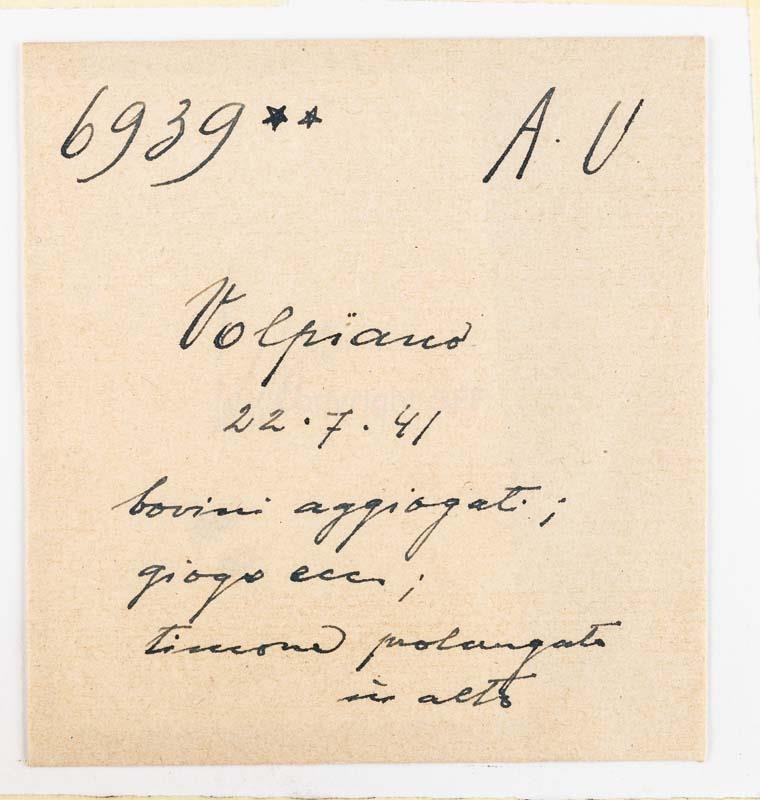 6939** A. U
Volpiano
22.7.41
bovini aggiogati;
giogo ecc.;
timone prolungato
in alto